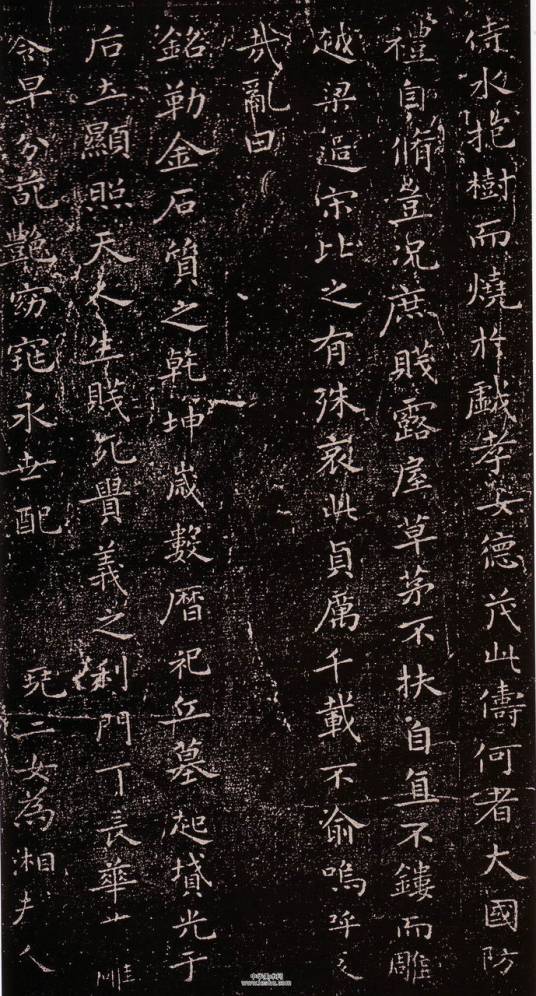 待水抱樹而燒於戯孝女德茂此儔何者大國防
禮自脩豈况庶賤露屋草茅不扶自直不鏤而雕
越梁過宋比之有殊哀此貞厲千載不渝嗚呼
哀哉亂曰
銘勒金石質之乾坤歲數曆祀丘墓起墳光于
后土顯照天人生賤死貴義之利門丁長華
雕
令早分葩艷窈窕永世配 尭二女為湘夫人
中华美术网